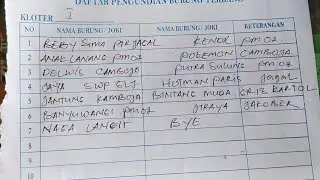 DAFTAR PENGUNDIAN BURUNG TERBANG
KLOTER I
NO NAMA BURUNG / JOKI NAMA BURUNG / JOKI KETERANGAN
1 KENDL PMOR
2 ANAK LANANG PMOR POLEMON CAMBOJA
3 DELWIS CAMBOJA PUTRA SULUNG PMOR
4 JAYA SWP GLT HOTMAN PARIS JAGAL
5 JANTUNG KAMBOJA BINTANG MUDA
6 BANYUWANGI PMOR JIRAYA JAKOBER
7 NAGA LANGIT BYE
8
9
10